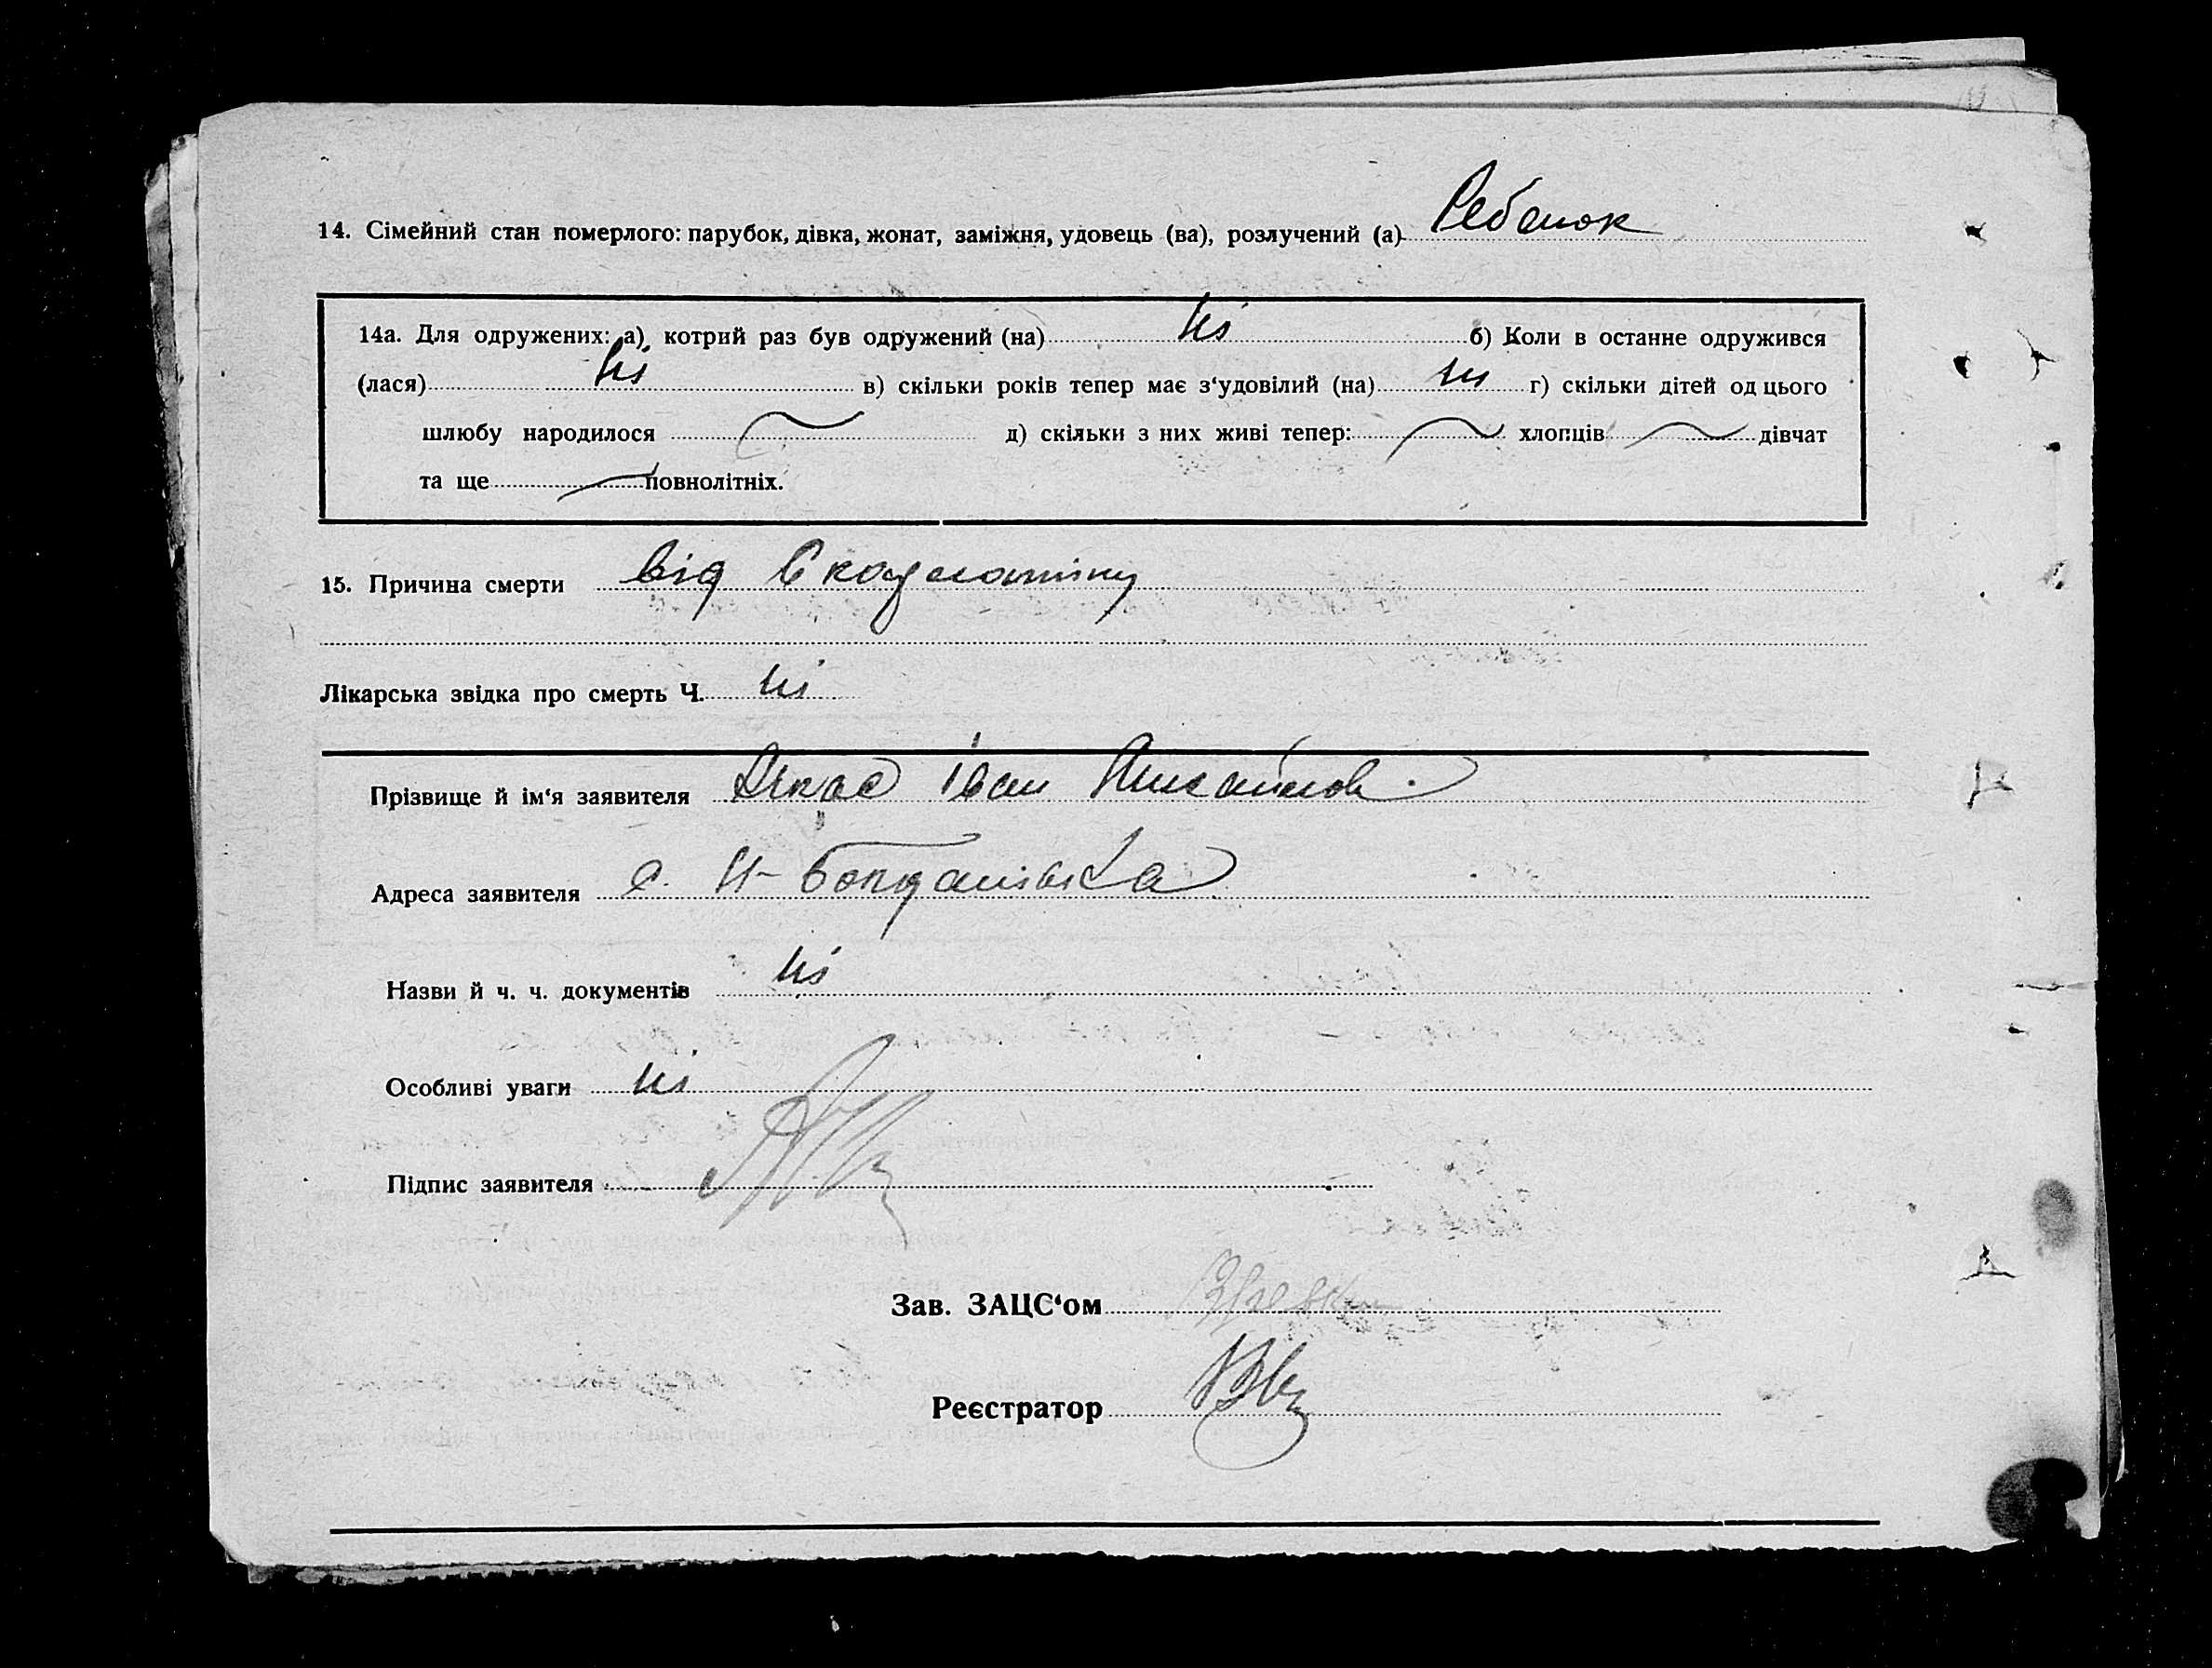 14. Сімейний стан померлого: парубок, дівка, жонат, заміжня, удовець (ва), розлучений (а) Ребенок
14а. Для одружених: а) котрий раз був одружений (на) ні б) Коли в останне одружився
(лася) ні в) скільки років тепер має з‘удовілий (на) ні г) скільки дітей од цього
шлюбу народилося д) скільки з них живі тепер: хлопців дівчат
та ще повнолітніх.
15. Причина смерти від Скарлатіни
Лікарська звідка про смерть Ч. ні
Прізвище й ім‘я заявителя Іван
Адреса заявителя с. Н-Богданівка
Назви й ч. ч. документів ні
Особливі уваги ні
Підпис заявителя
Зав. ЗАЦС‘ом
Реєстратор